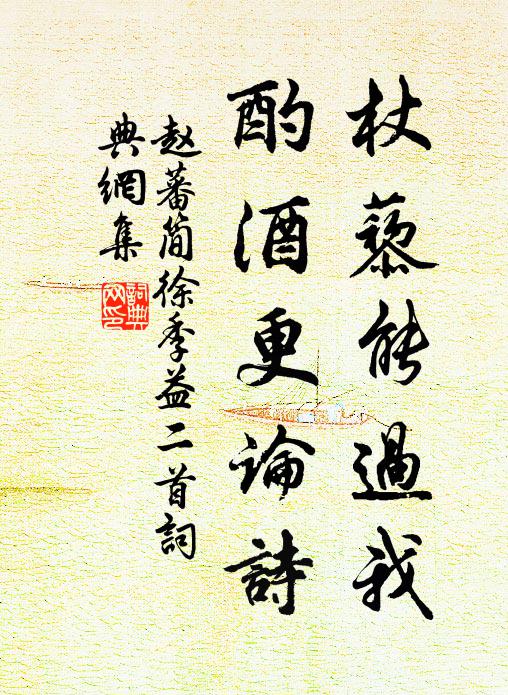 杖藜能過我
酌酒更論詩
赵蕃简徐季益二首詞
典網集
詞典网印